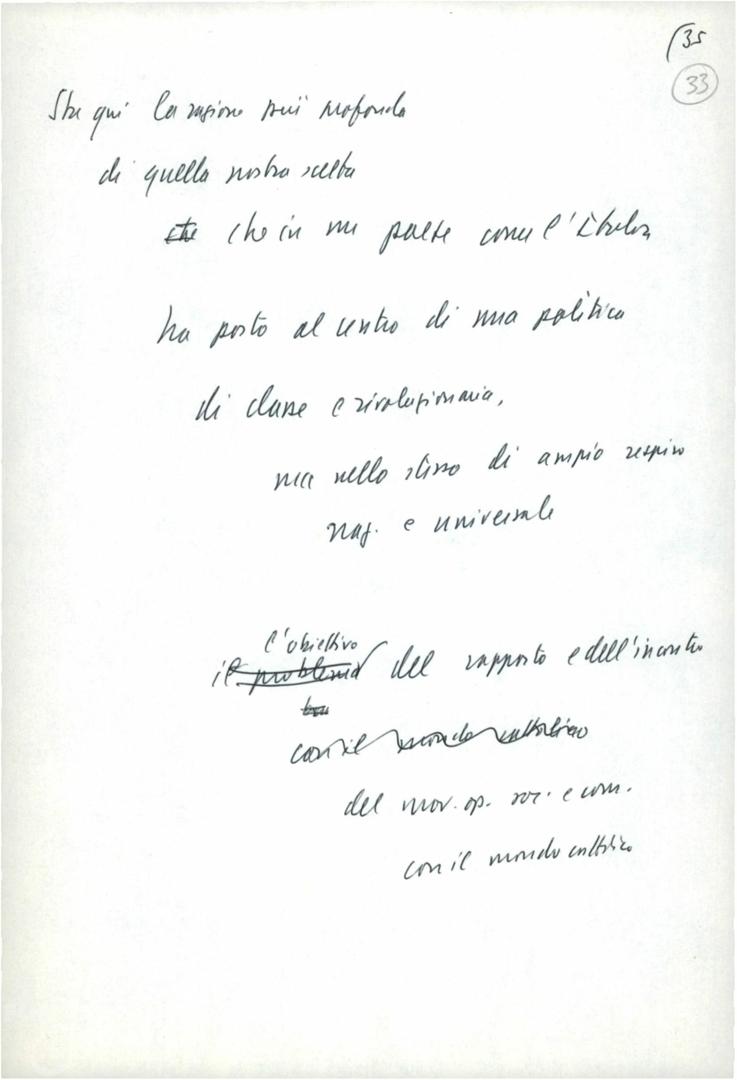 (35
33
Sta qui la ragione più profonda
di quella nostra scelta
che in un paese come l'Italia
ha posto al centro di una politica
di classe e rivoluzionaria,
ma nello stesso di ampio respiro
naz. e universale
l'obiettivo
il problema del rapporto e dell'incontro
con il mondo cattolico
del mov. op. soc. e com.
con il mondo cattolico